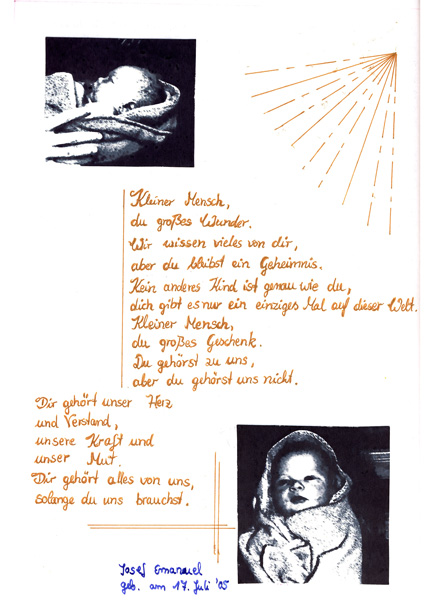 Kleiner Mensch,
du großes Wunder.
Wir wissen vieles von dir,
aber du bleibst ein Geheimnis.
Kein anderes Kind ist genau wie du,
dich gibt es nur ein einziges Mal auf dieser Welt.
Kleiner Mensch,
du großes Geschenk.
Du gehörst zu uns,
aber du gehörst uns nicht.
Dir gehört unser Herz
und Verstand,
unsere Kraft und
unser Mut.
Dir gehört alles von uns,
solange du uns brauchst.
Josef Emanuel
geb. am 17. Juli '05